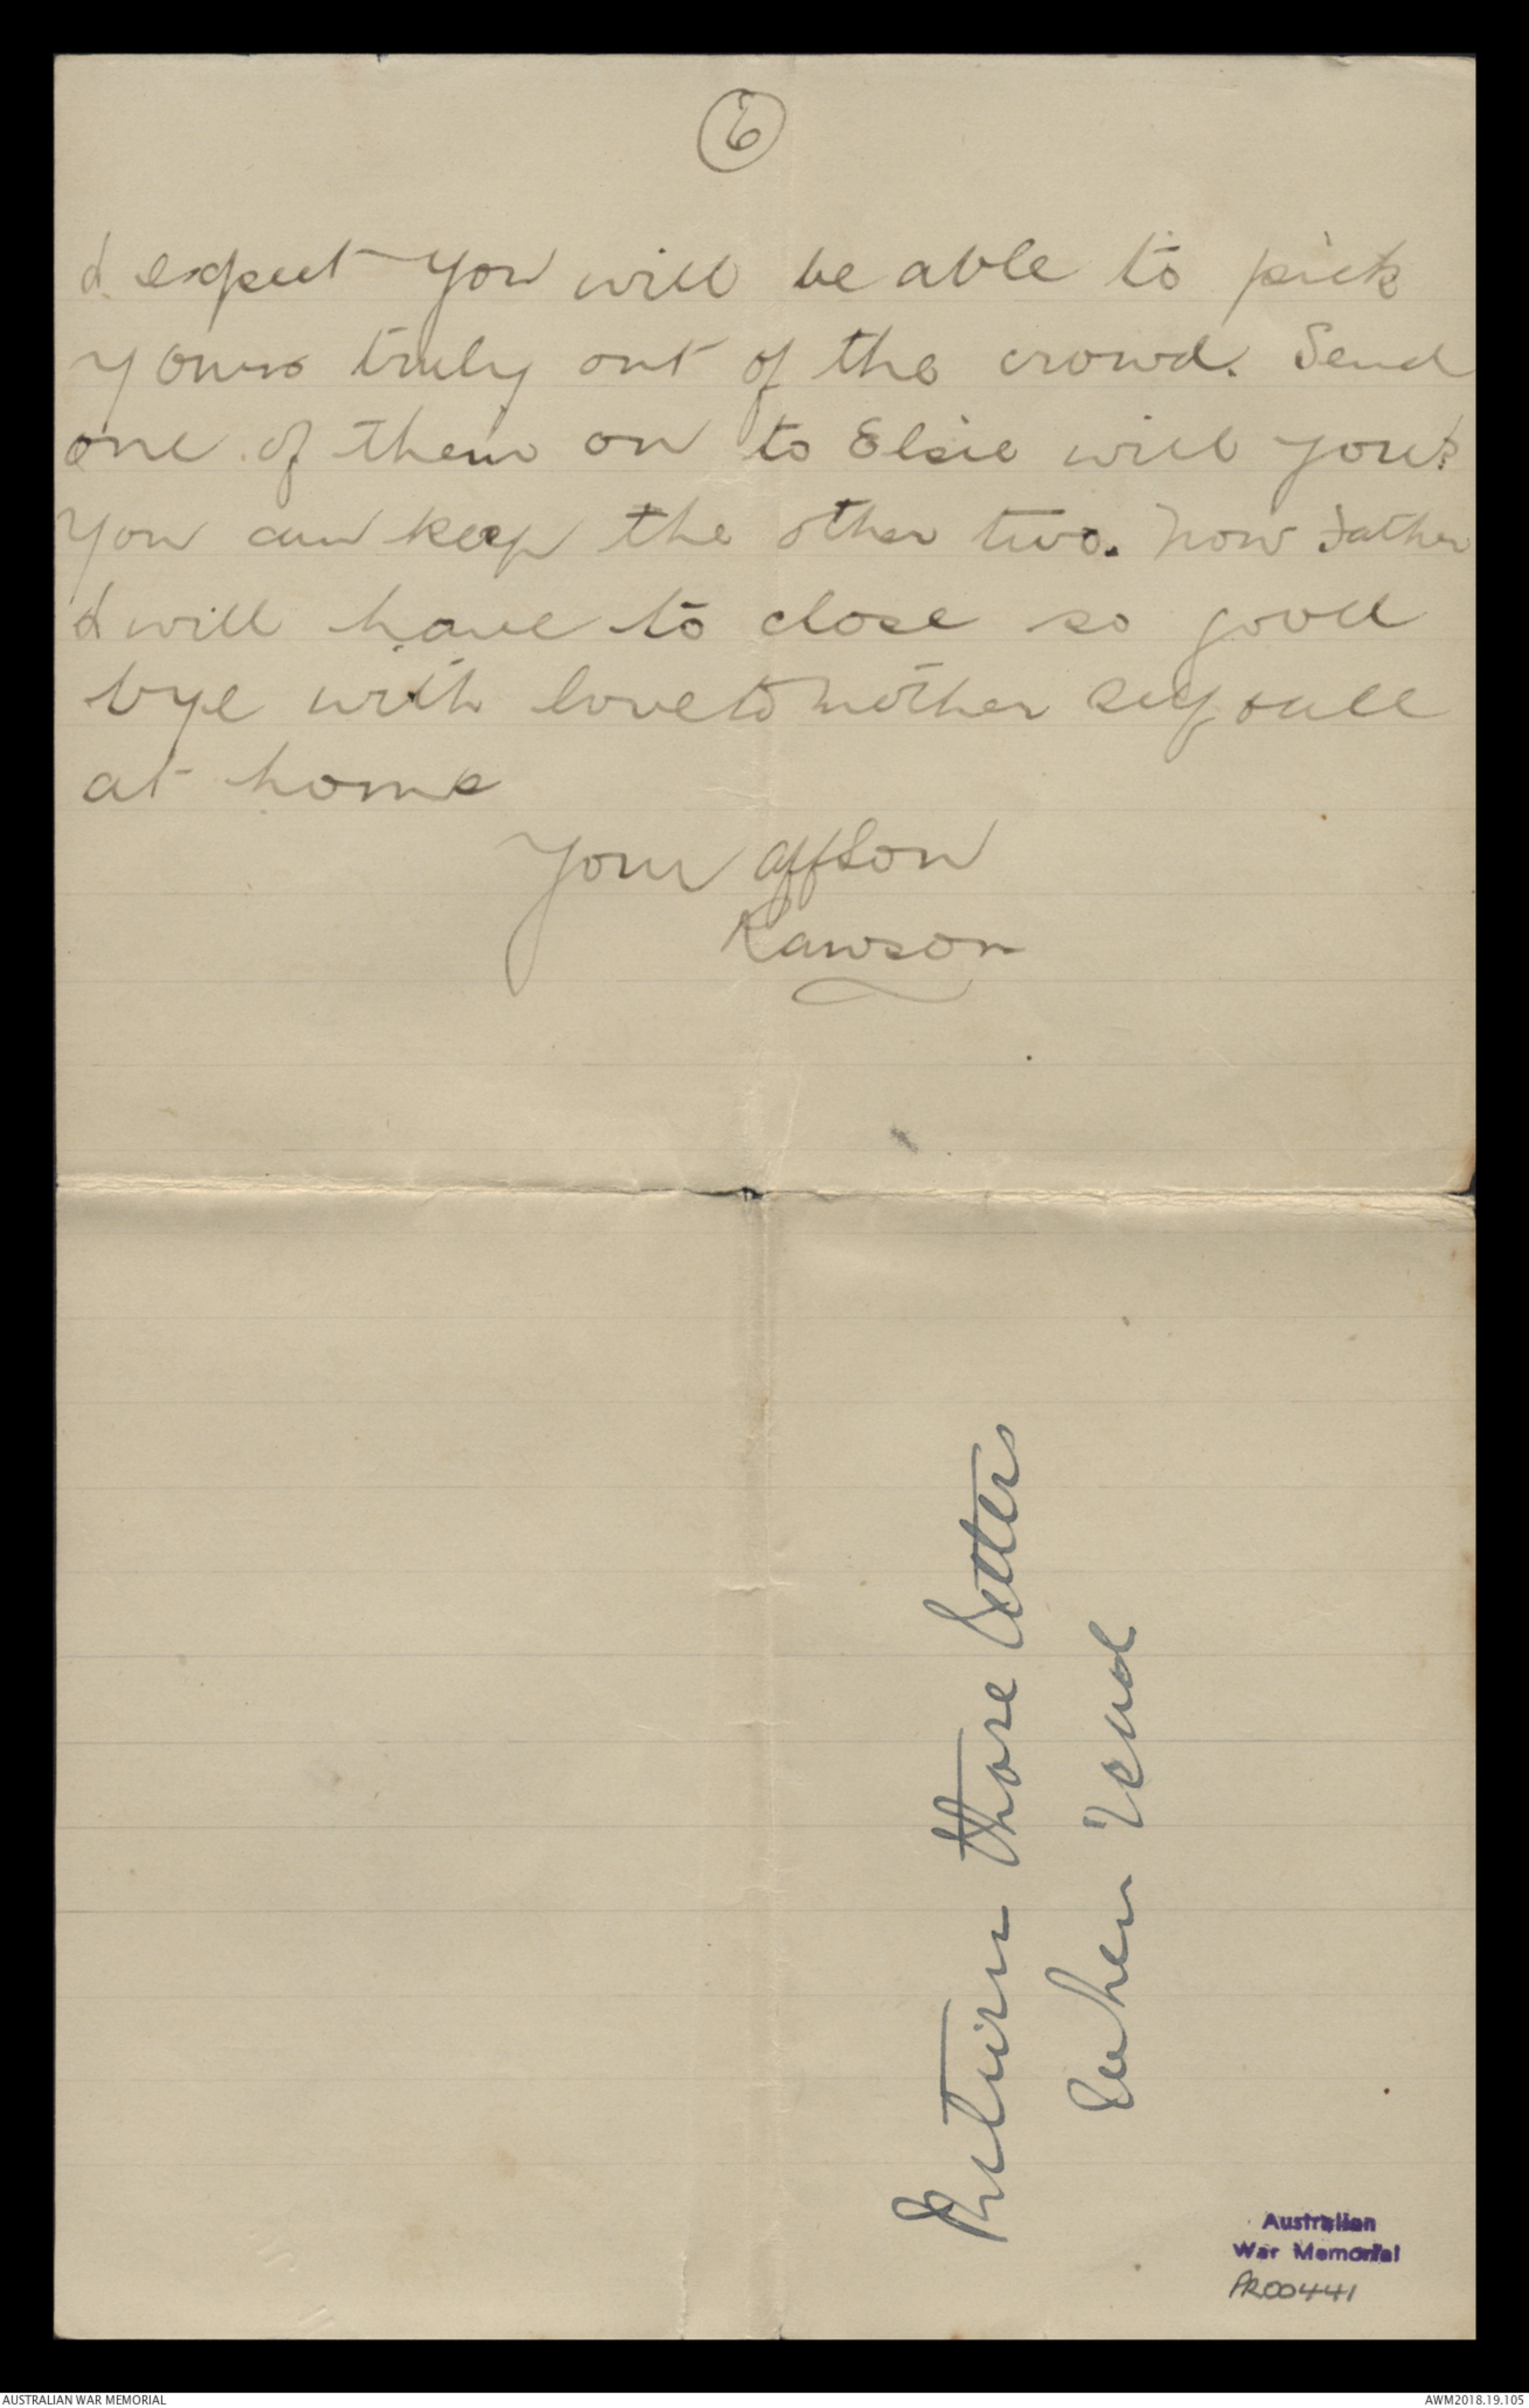 6
I expect you will be able to pick
yours truly out of the crowd. Send
one of them on to Elsie will you?
You can keep the other two. Now Father
I will have to close so good
bye with love to Mother self & all
at home
Your aff Son
Rawson
Return those letters
when read
Australian
War Memorial
PR00441
AUSTRALIAN WAR MEMORIAL
AWM2018.19.105